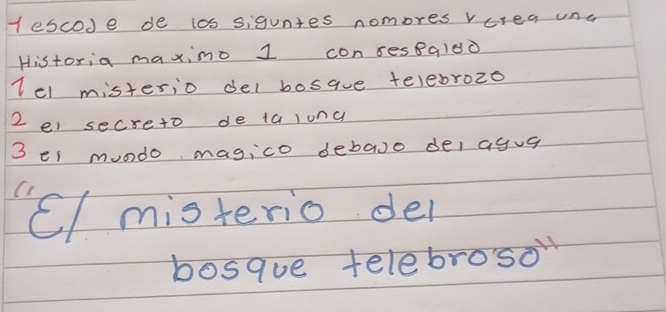 1 escoje de los siguntes nombres y crea una
Historia maximo 1 con respaldo
1 el misterio del bosque telebrozo
2 el secreto de la luna
3 el mundo magico debajo del agua
"El misterio del
bosque telebroso"